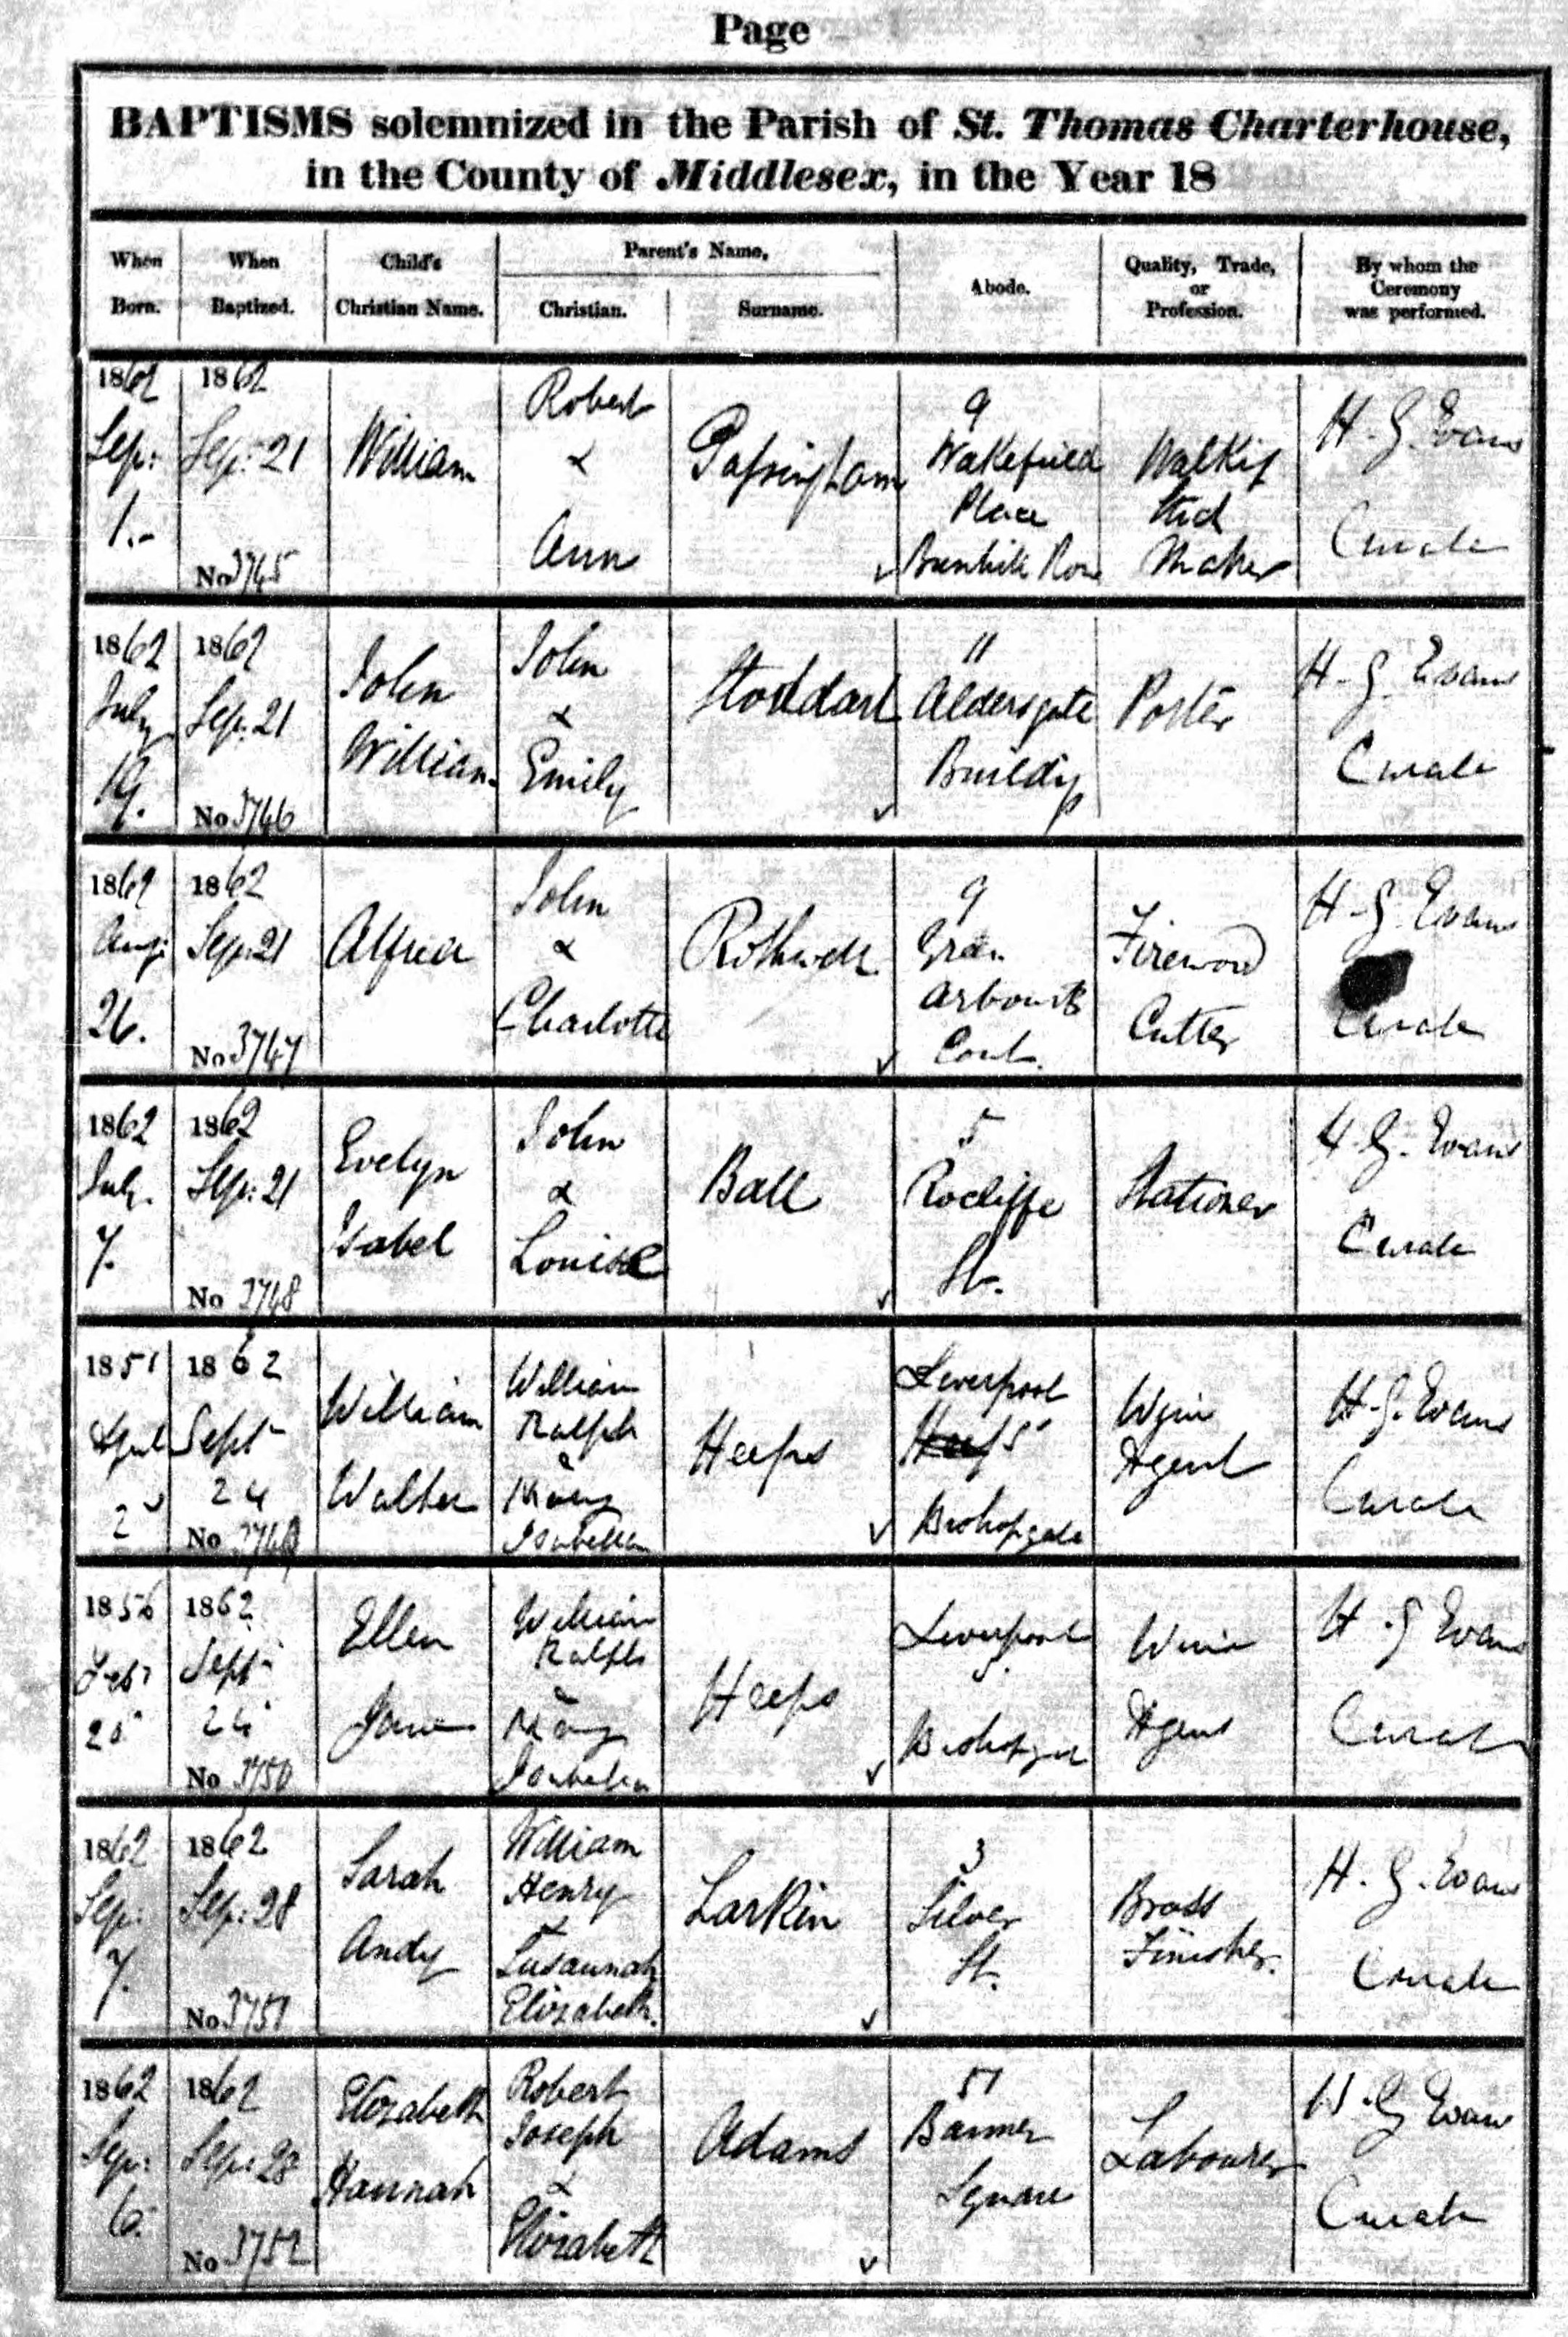 Page
BAPTISMS solemnized in the Parish of St. Thomas Charterhouse,
in the County of Middlesex, in the Year 18
When Born.
When Baptized.
Child's Christian Name.
Parent's Name,
Christian.
Surname.
Abode.
Quality, Trade, or Profession.
By whom the Ceremony was performed.
1862
Sep:
1.-
1862
Sep: 21
No 3745
William
Robert
&
Ann
Passingham
9
Wakefield
Place
Bunhill Row
Walkig
Stick
Maker
H. G. Evans
Curate
1862
July
19.
1862
Sep: 21
No 3746
John
William
John
&
Emily
Stoddart
11
Aldersgate
Buildgs
Porter
H. G. Evans
Curate
1862
Aug:
26.
1862
Sep: 21
No 3747
Alfred
John
&
Charlotte
Rothwell
9
Green
Arbour
Court.
Firewood
Cutter
H. G. Evans
Curate
1862
July
7.
1862
Sep: 21
No 3748
Evelyn
Isabel
John
&
Louisa
Ball
5
Rocliffe
St.
Stationer
H. G. Evans
Curate
1851
April
2
1862
Sept
24
No 3749
William
Walter
William
Ralph
&
Mary
Isabella
Heeps
Liverpool
St
Bishopgate
Wine
Agent
H. G. Evans
Curate
1856
Feb
1862
Sept
24
No 3750
Ellen
Jane
William
Ralph
&
Mary
Isabella
Heeps
Liverpool
S.
Bishopgate
Wine
Agent
H. G. Evans
Curate
1862
Sep:
7.
1862
Sep: 28
No 3751
Sarah
Andy
William
Henry
&
Susannah
Elizabeth.
Larkin
3
Silver
St.
Brass
Finisher.
H. G. Evans
Curate
1862
Sep:
6.
1862
Sep: 28
No 3752
Elizabeth
Hannah
Robert
Joseph
&
Elizabeth
Adams
51
Banner
Square
Labourer
H. G. Evans
Curate